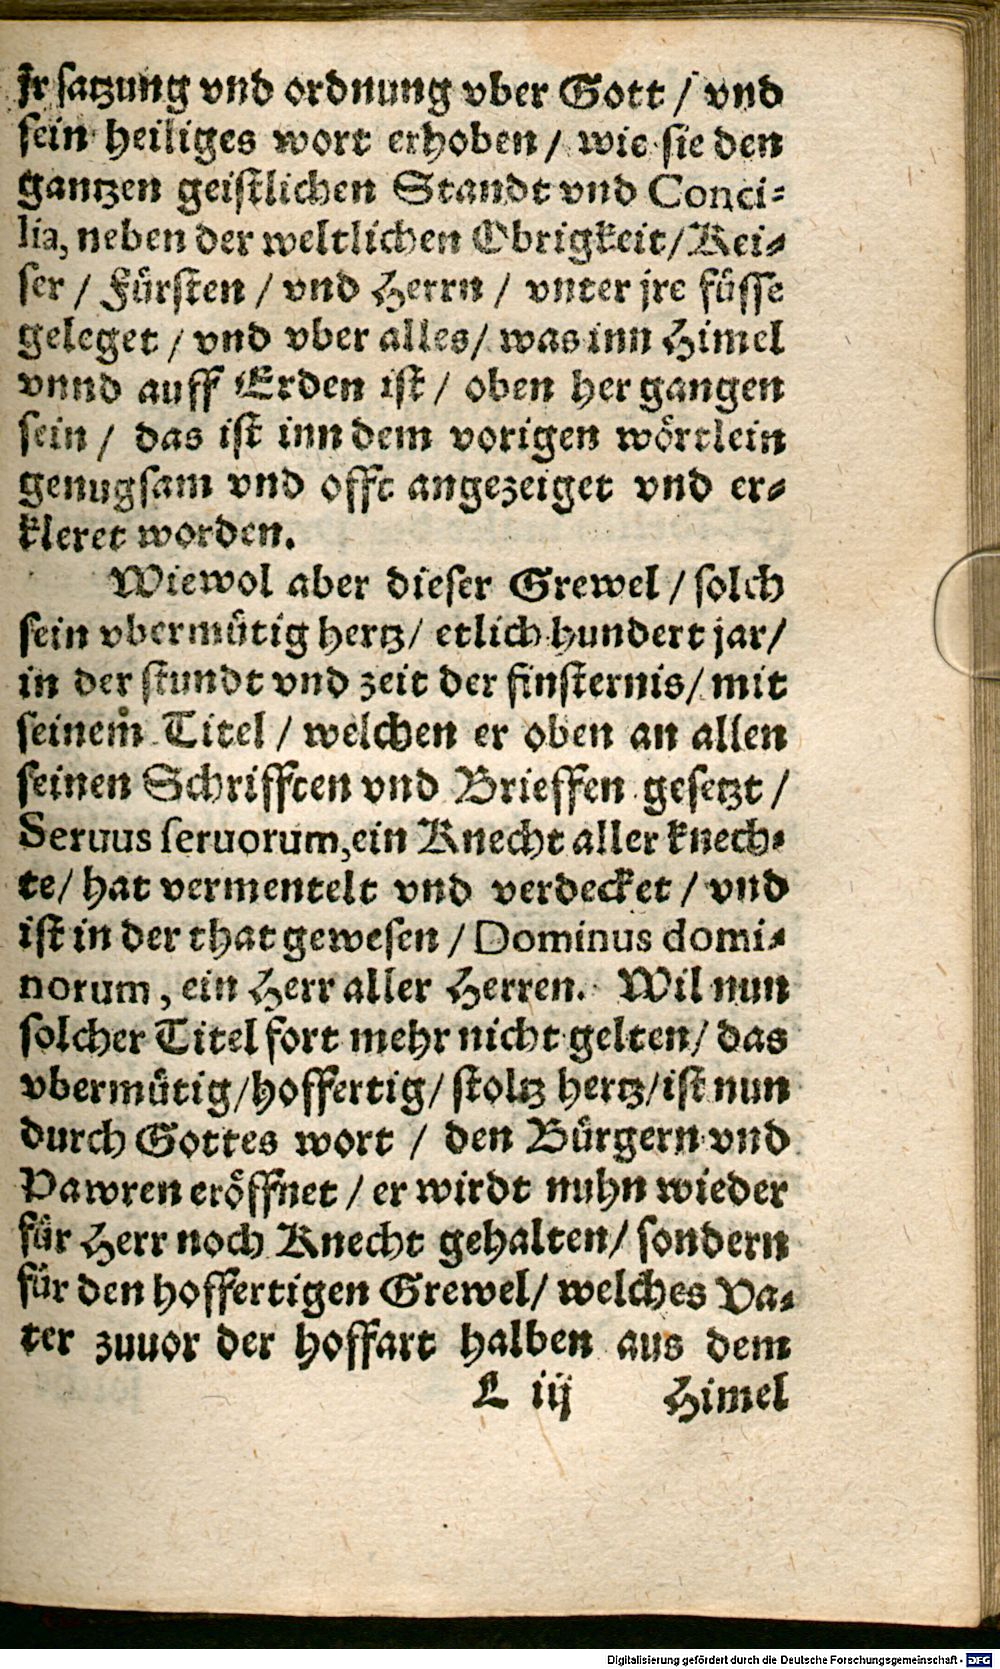 Ir satzung vnd ordnung vber Gott / vnd
sein heiliges wort erhoben / wie sie den
gantzen geistlichen Standt vnd Conci⸗
lia, neben der weltlichen Obrigkeit/ Kei⸗
ser / Fürsten / vnd Herrn / vnter jre füsse
geleget / vnd vber alles/ was inn Himel
vnnd auff Erden ist / oben her gangen
sein / das ist inn dem vorigen wörtlein
genugsam vnd offt angezeiget vnd er⸗
kleret worden.
Wiewol aber dieser Grewel / solch
sein vbermütig hertz/ etlich hundert jar/
in der stundt vnd zeit der finsternis/ mit
seinem Titel / welchen er oben an allen
seinen Schrifften vnd Brieffen gesetzt /
Seruus seruorum, ein Knecht aller knech⸗
te/ hat vermentelt vnd verdecket / vnd
ist in der that gewesen / Dominus domi⸗
norum, ein Herr aller Herren. Wil nun
solcher Titel fort mehr nicht gelten/ das
vbermütig/ hoffertig/ stoltz hertz/ ist nun
durch Gottes wort / den Bürgern vnd
Pawren eröffnet / er wirdt nuhn wieder
für Herr noch Knecht gehalten/ sondern
für den hoffertigen Grewel/ welches Va⸗
ter zuuor der hoffart halben aus dem
L iij Himel
Digitalisierung gefördert durch die Deutsche Forschungsgemeinschaft - DFG